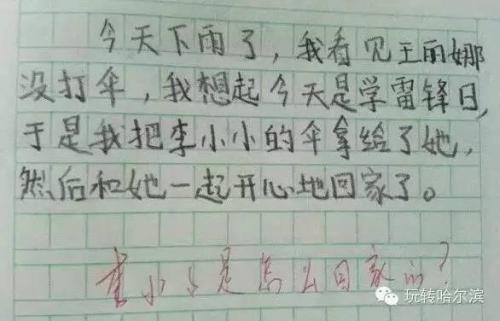 今天下雨了，我看见王丽娜
没打伞，我想起今天是学雷锋日，
于是我把李小小的伞拿给了她，
然后和她一起开心地回家了。
李小小是怎么回家的？
玩转哈尔滨